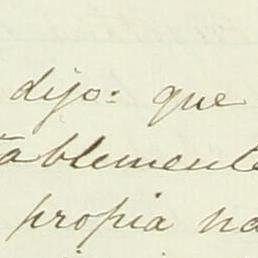 dijo: que
tablemente
propia na